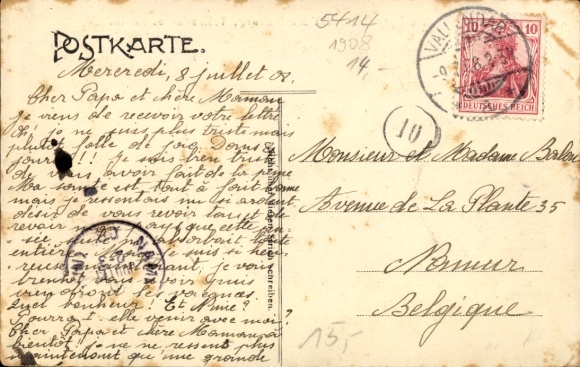 5414
1908
14,-
POSTKARTE.
VALLENDAR
10 10
DEUTSCHES REICH
10
Mercredi, 8 juillet 08.
Cher Papa et chère Maman
Je viens de recevoir votre lettre
Oh! je ne suis plus triste mais
plutôt folle de joie. Dans
jours!!! Je suis bien triste
de vous avoir fait de la peine
Ma santé est tout à fait bonne
mais je ressentais un si ardent
désir de vous revoir tous, de
revoir que cette
sée
entière. je suis si heu
reuse maintenant, je vais
bientôt vous revoir puis
viendront les vacances.
Quel bonheur! Et Nine?
Pourra-t-elle venir avec moi?
Cher Papa et chère Maman, à
bientôt! je ne ressens plus
maintenant qu'une grande
NAMUR
Monsieur et Madame
Avenue de La Plante 35
Namur
Belgique
15,-